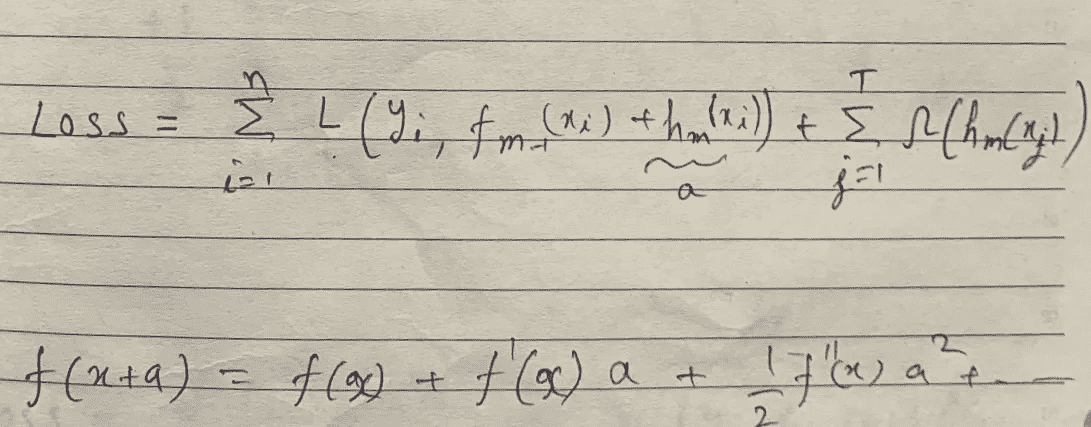 Loss = \sum_{i=1}^{n} L(y_i, f_{m-1}(x_i) + \underbrace{h_m(x_i)}_{a}) + \sum_{j=1}^{T} Ω(h_m(x_j))
f(x+a) = f(x) + f'(x) a + \frac{1}{2} f''(x) a^2 + - —